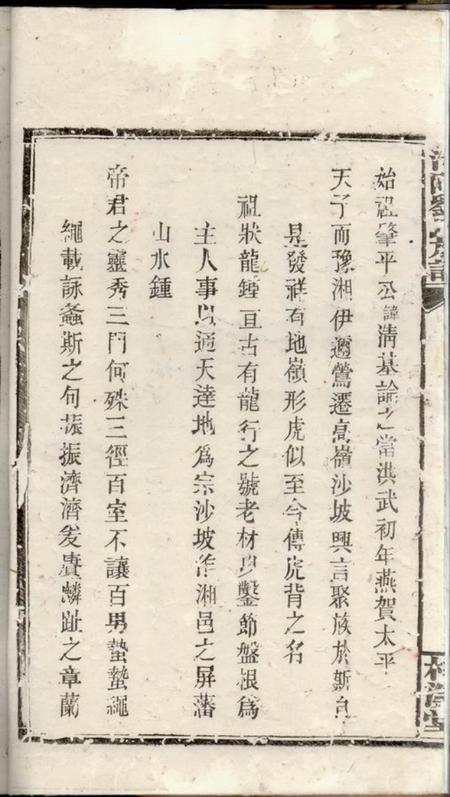 始祖肇平公諱淸墓論之當洪武初年燕賀太平
天子而豫湘伊邇鶯遷高嶺沙坡興言聚族於斯自
是發祥有地嶺形虎似至今傳虎背之名
祖狀龍鍾亘古有龍行之號老材以鑿節盤根爲
主人事以通天達地爲宗沙坡作湘邑之屏藩
山水鍾
帝君之靈秀三門何殊三徑百室不讓百男蟄蟄繩
繩載詠螽斯之句振振濟濟爰賡麟趾之章蘭